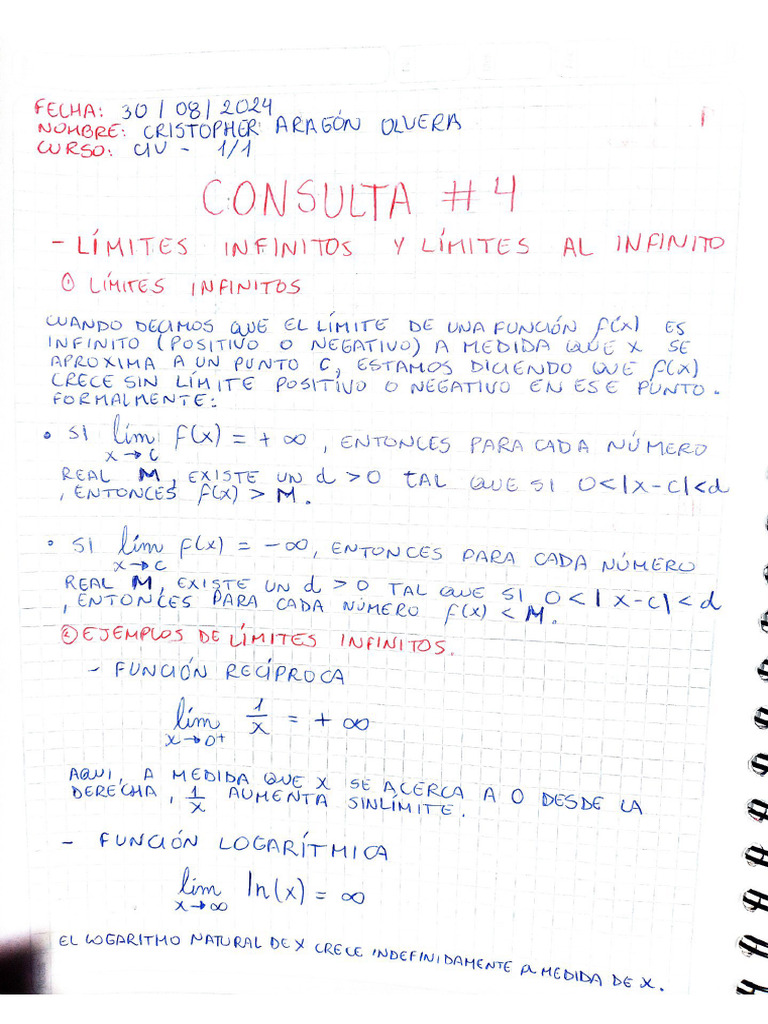 FECHA: 30 / 08 / 2024
1
NOMBRE: CRISTOPHER ARAGÓN OLVERA
CURSO: CIV - 1/1
CONSULTA # 4
- LÍMITES INFINITOS Y LÍMITES AL INFINITO
① LÍMITES INFINITOS
CUANDO DECIMOS QUE EL LÍMITE DE UNA FUNCIÓN f(x) ES
INFINITO (POSITIVO O NEGATIVO) A MEDIDA QUE X SE
APROXIMA A UN PUNTO C, ESTAMOS DICIENDO QUE f(x)
CRECE SIN LÍMITE POSITIVO O NEGATIVO EN ESE PUNTO.
FORMALMENTE:
• SI lím f(x) = + ∞, ENTONCES PARA CADA NÚMERO
x→c
REAL M, EXISTE UN d > 0 TAL QUE SI 0<|x-c|<d
, ENTONCES f(x) > M.
• SI lím f(x) = -∞, ENTONCES PARA CADA NÚMERO
x→c
REAL M, EXISTE UN d > 0 TAL QUE SI 0<|x-c|<d
, ENTONCES PARA CADA NÚMERO f(x) < M.
② EJEMPLOS DE LÍMITES INFINITOS.
- FUNCIÓN RECÍPROCA
lím 1/x = + ∞
x→0⁺
AQUI, A MEDIDA QUE X SE ACERCA A 0 DESDE LA
DERECHA, 1/x AUMENTA SINLÍMITE.
- FUNCIÓN LOGARÍTMICA
lím ln(x) = ∞
x→∞
EL LOGARITMO NATURAL DE X CRECE INDEFINIDAMENTE A MEDIDA DE X.